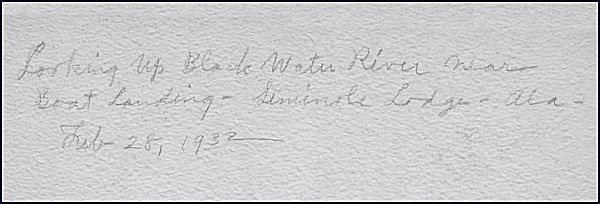 Looking Up Black Water River near
Boat Landing - Seminole Lodge - Ala -
Feb 28, 1932